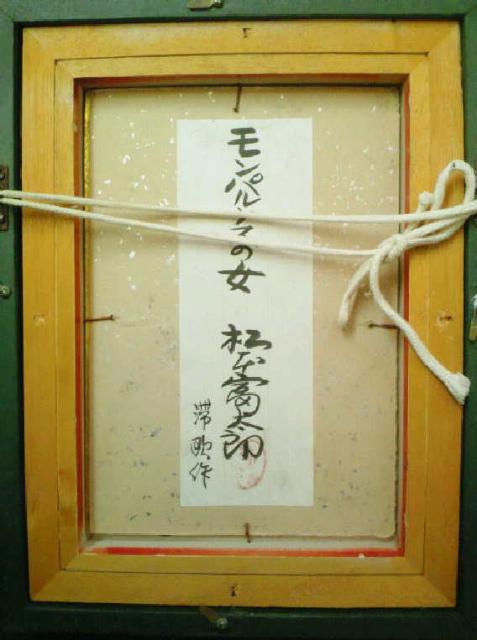 モンパルナスの女
松本富太郎
滞欧作